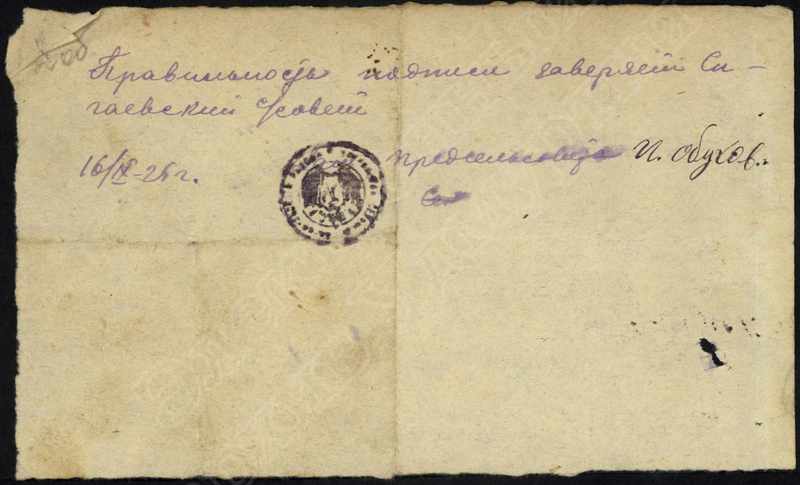 Правильность подписи заверяет Си-
гаевский с/совет
16/IX-26 г.
Предсельсовета П. Обухов.